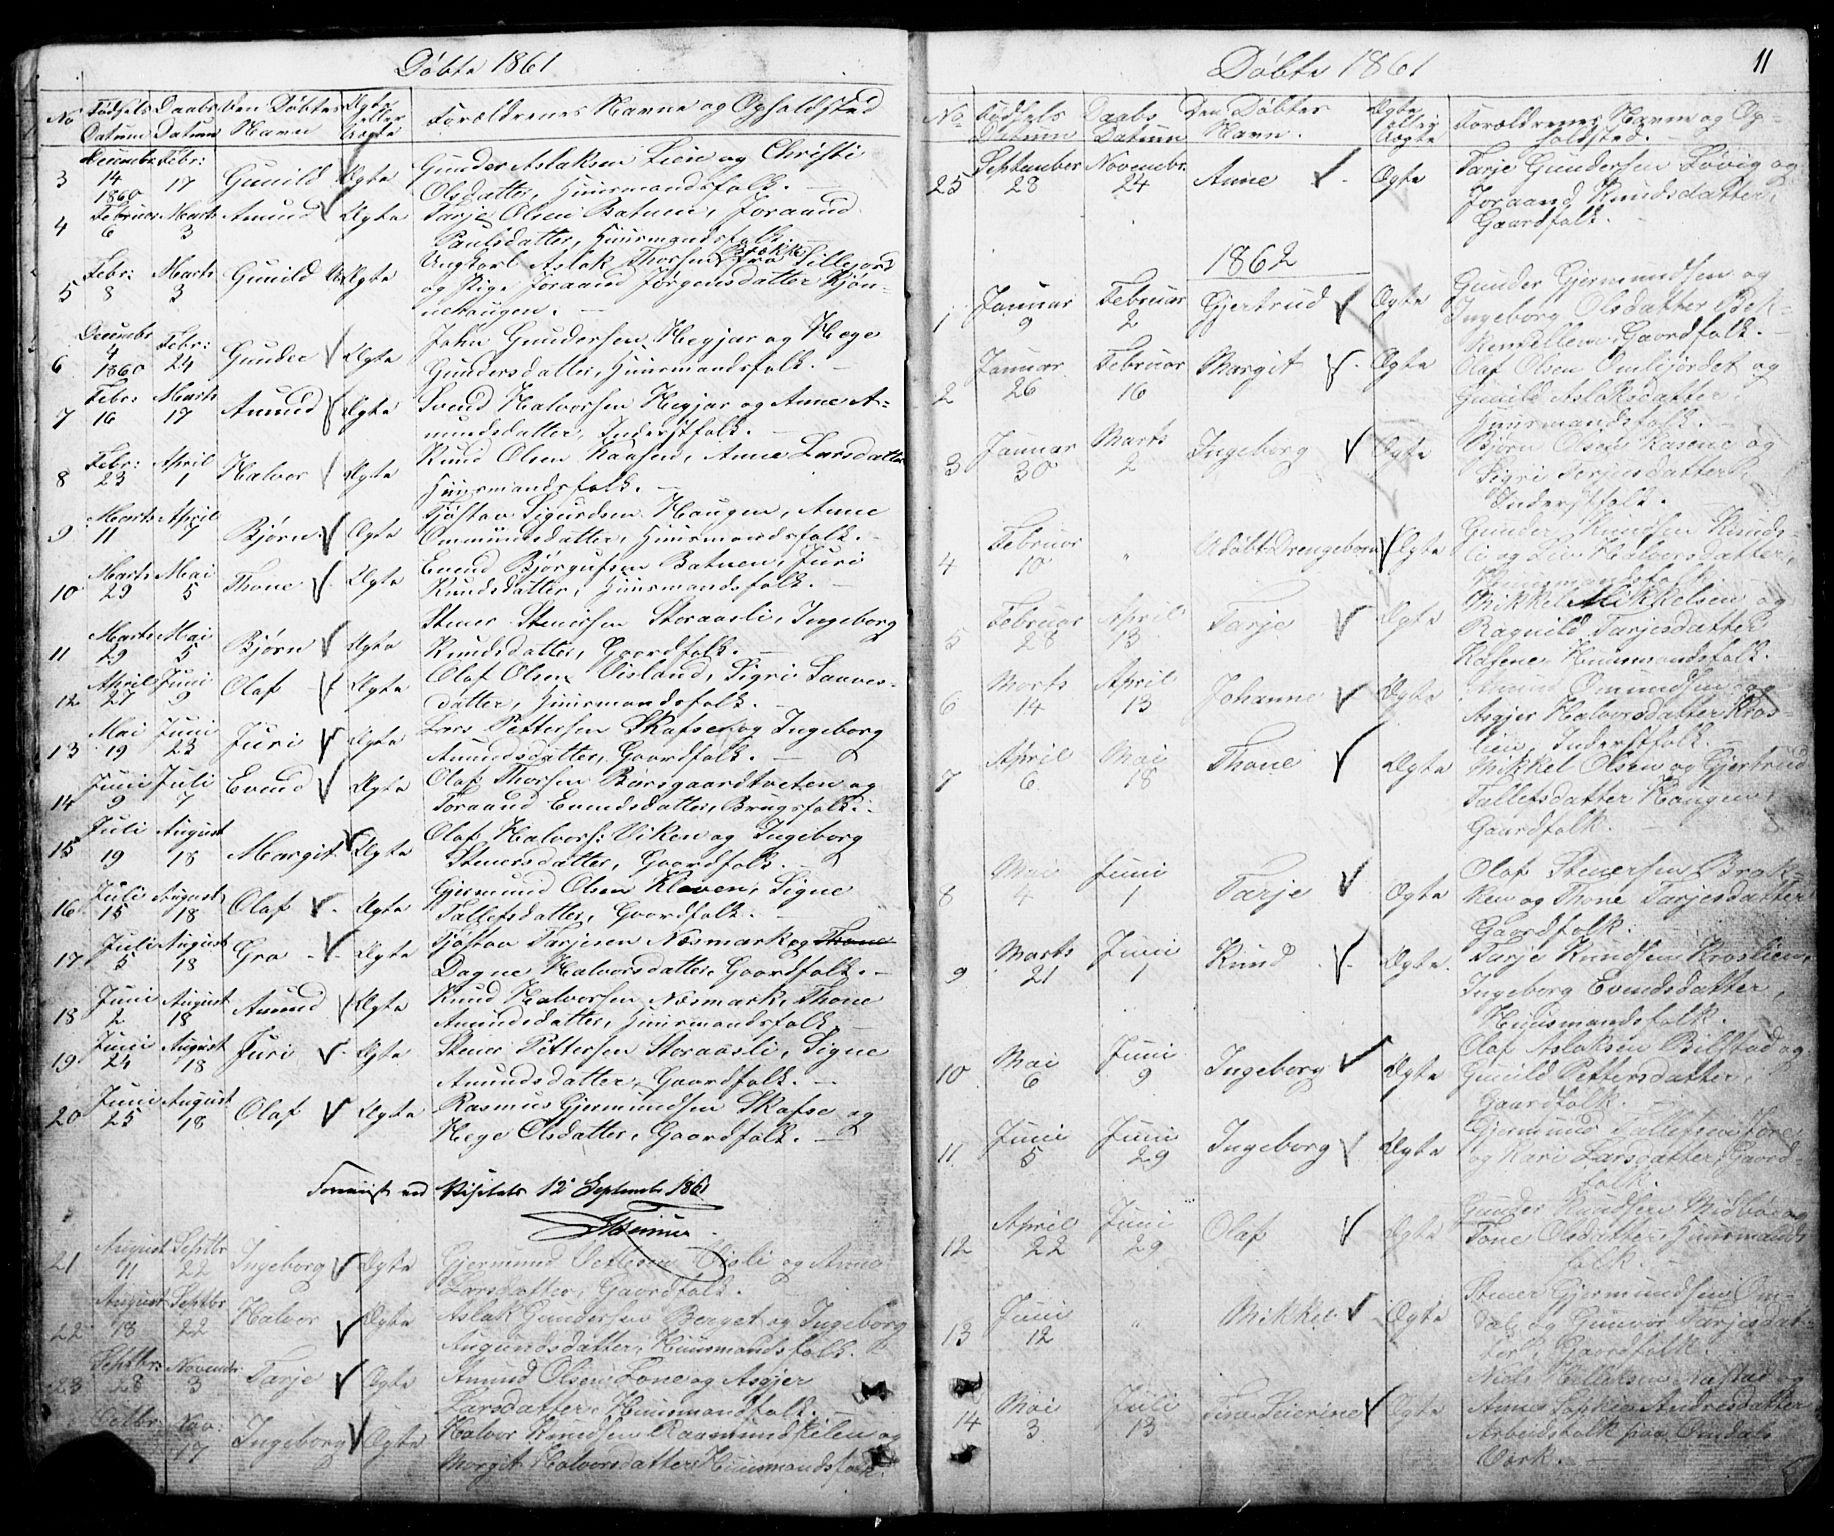 Döbte 1861
No Fødsels Datum Daabs Datum Den Döbtes Navn Ægte eller Uægte Forældrenes Navne og Opholdssted
3 Decembr 14 1860 Febr: 17 Gunild Ægte Gunder Aslaksen Lien og Christi
Olsdatter, Huusmandsfolk.
4 Februar 6 Marts 3 Amund Ægte Tarje Olsen Batnen, Joraand
Paulsdatter, Huusmandsfolk.
5 Febr: 8 Marts 3 Gunild Uægte Ungkarl Aslak Thorsen Brække fra Sillejord
og Pige Joraand Jørgensdatter Bjön-
nehaugen.
6 Decembr 4 1860 Febr: 24 Gunder Ægte John Gundersen Hegjar og Hege
Gundersdatter, Huusmandsfolk.
7 Febr: 16 Marts 17 Amund Ægte Svend Halvorsen Hegjar og Anne A-
mundsdatter, Inderstfolk.
8 Febr: 23 April 1 Halvor Ægte Knud Olsen Kaasen, Anne Larsdatter
Huusmandsfolk.
9 Marts 11 April 7 Bjørn Ægte Tjøstov Sigurdsen Haugen, Anne
Ommundsdatter, Huusmandsfolk.
10 Marts 29 Mai 5 Thone Ægte Evend Björgufsen Batnen, Juri
Knudsdatter, Huusmandsfolk.
11 Marts 29 Mai 5 Bjørn Ægte Stener Stenersen Storaasli, Ingeborg
Knudsdatter, Gaardfolk.
12 April 27 Juni 9 Olaf Ægte Olaf Olsen Visland, Sigri Saaves-
datter, Huusmandsfolk.
13 Mai 19 Juni 23 Juri Ægte Lars Pettersen Skafse og Ingeborg
Amundsdatter, Gaardfolk.
14 Juni 9 Juli 7 Evend Ægte Olaf Thorsen Börsgaardtveten og
Joraand Evendsdatter, Brugsfolk.
15 Juli 19 August 18 Margit Ægte Olaf Halvors: Viken og Ingeborg
Stenersdatter, Gaardfolk.
16 Juli 15 August 18 Olaf Ægte Gjermund Olsen Kleven, Signe
Tallefsdatter, Gaardfolk.
17 Juli 5 August 18 Gro Ægte Tjøstov Tarjesen Næsmark og Thone
Dagne Halvorsdatter, Gaardfolk.
18 Juni 2 August 18 Amund Ægte Knud Halvorsen Næsmark, Thone
Amundsdatter, Huusmandsfolk
19 Juni 24 August 18 Juri Ægte Stener Pettersen Storaasli, Signe
Amundsdatter, Gaardfolk.
20 Juni 25 August 18 Olaf Ægte Rasmus Gjermundsen Skafse og
Hege Olsdatter, Gaardfolk.
ved Visitats 12 Septembr 1861
21 August 11 Septbr 22 Ingeborg Ægte Gjermund Oisli og Anne
Larsdatter, Gaardfolk.
22 August 18 Septbr 22 Halvor Ægte Aslak Gundersen Berget og Ingeborg
Augundsdatter, Huusmandsfolk.
23 Septbr: 28 Novembr: 3 Tarje Ægte Amund Olsen Lone og Asgjer
Larsdatter, Huusmandsfolk.
Octbr: Nov: 17 Ingeborg Ægte Halvor Knudsen Raamundkilen og
Margit Halvorsdatter Huusmandsfolk.
Döbte 1861
11
No Fødsels Datum Daabs Datum Den Döbtes Navn. Ægte eller Uægte Forældrenes Navne og Op-
holdssted.
25 September 28 Novembr. 24 Anne Ægte Tarje Gundersen Lövig og
Joraand Knudsdatter,
Gaardfolk.
1862
1 Januar 9 Februar 2 Gjertrud Ægte Gunder Gjermundsen og
Ingeborg Olsdatter
Gaardfolk.
2 Januar 26 Februar 16 Margit Ægte Olaf Olsen Omlijordet og
Gunild Aslaksdatter,
Huusmandsfolk.
3 Januar 30 Marts 2 Ingeborg Ægte Björn Olsen Rasene og
Sigri Terjesdatter
Inderstfolk.
4 Februar 10 " Udöbt Drengebarn Ægte Gunder Knudsen Knuds-
li og Liv Halvorsdatter,
Huusmandsfolk.
5 Februar 28 April 13 Tarje Ægte Mikkel Mikkelsen og
Ragnild Tarjesdatter
Rafene, Huusmandsfolk.
6 Marts 14 April 13 Johanne Ægte Amund Omundsen og
Asgjer Halvorsdatter Kros-
lien, Inderstfolk.
7 April 6 Mai 18 Thone Ægte Mikkel Olsen og Gjertrud
Tallefsdatter Haugen,
Gaardfolk.
8 Mai 4 Juni 1 Tarje Ægte Olaf Stenersen Brok-
ken og Thone Tarjesdatter
Gaardfolk.
9 Marts 21 Juni 1 Knud Ægte Tarje Knudsen Kroslien,
Ingeborg Evendsdatter,
Huusmandsfolk.
10 Mai 6 Juni 9 Ingeborg Ægte Olaf Aslaksen Bilstad og
Gunild Pettersdatter,
Gaardfolk.
11 Juni 5 Juni 29 Ingeborg Ægte Gjermund Tallefsen
og Kari Larsdatter, Gaard-
folk.
12 April 22 Juni 29 Olaf Ægte Gunder Knudsen Midbö og
Tone Olsdatter, Huusmands
folk.
13 Juni 12 " Mikkel Ægte Stener Gjermundsen Om-
dal og Gunvor Tarjesdat-
ter, Gaardfolk.
14 Mai 3 Juli 13 Ægte Niels Næstad og
Anne Sophie Andresdatter
Arbeidsfolk fraa Omdals
Værk.